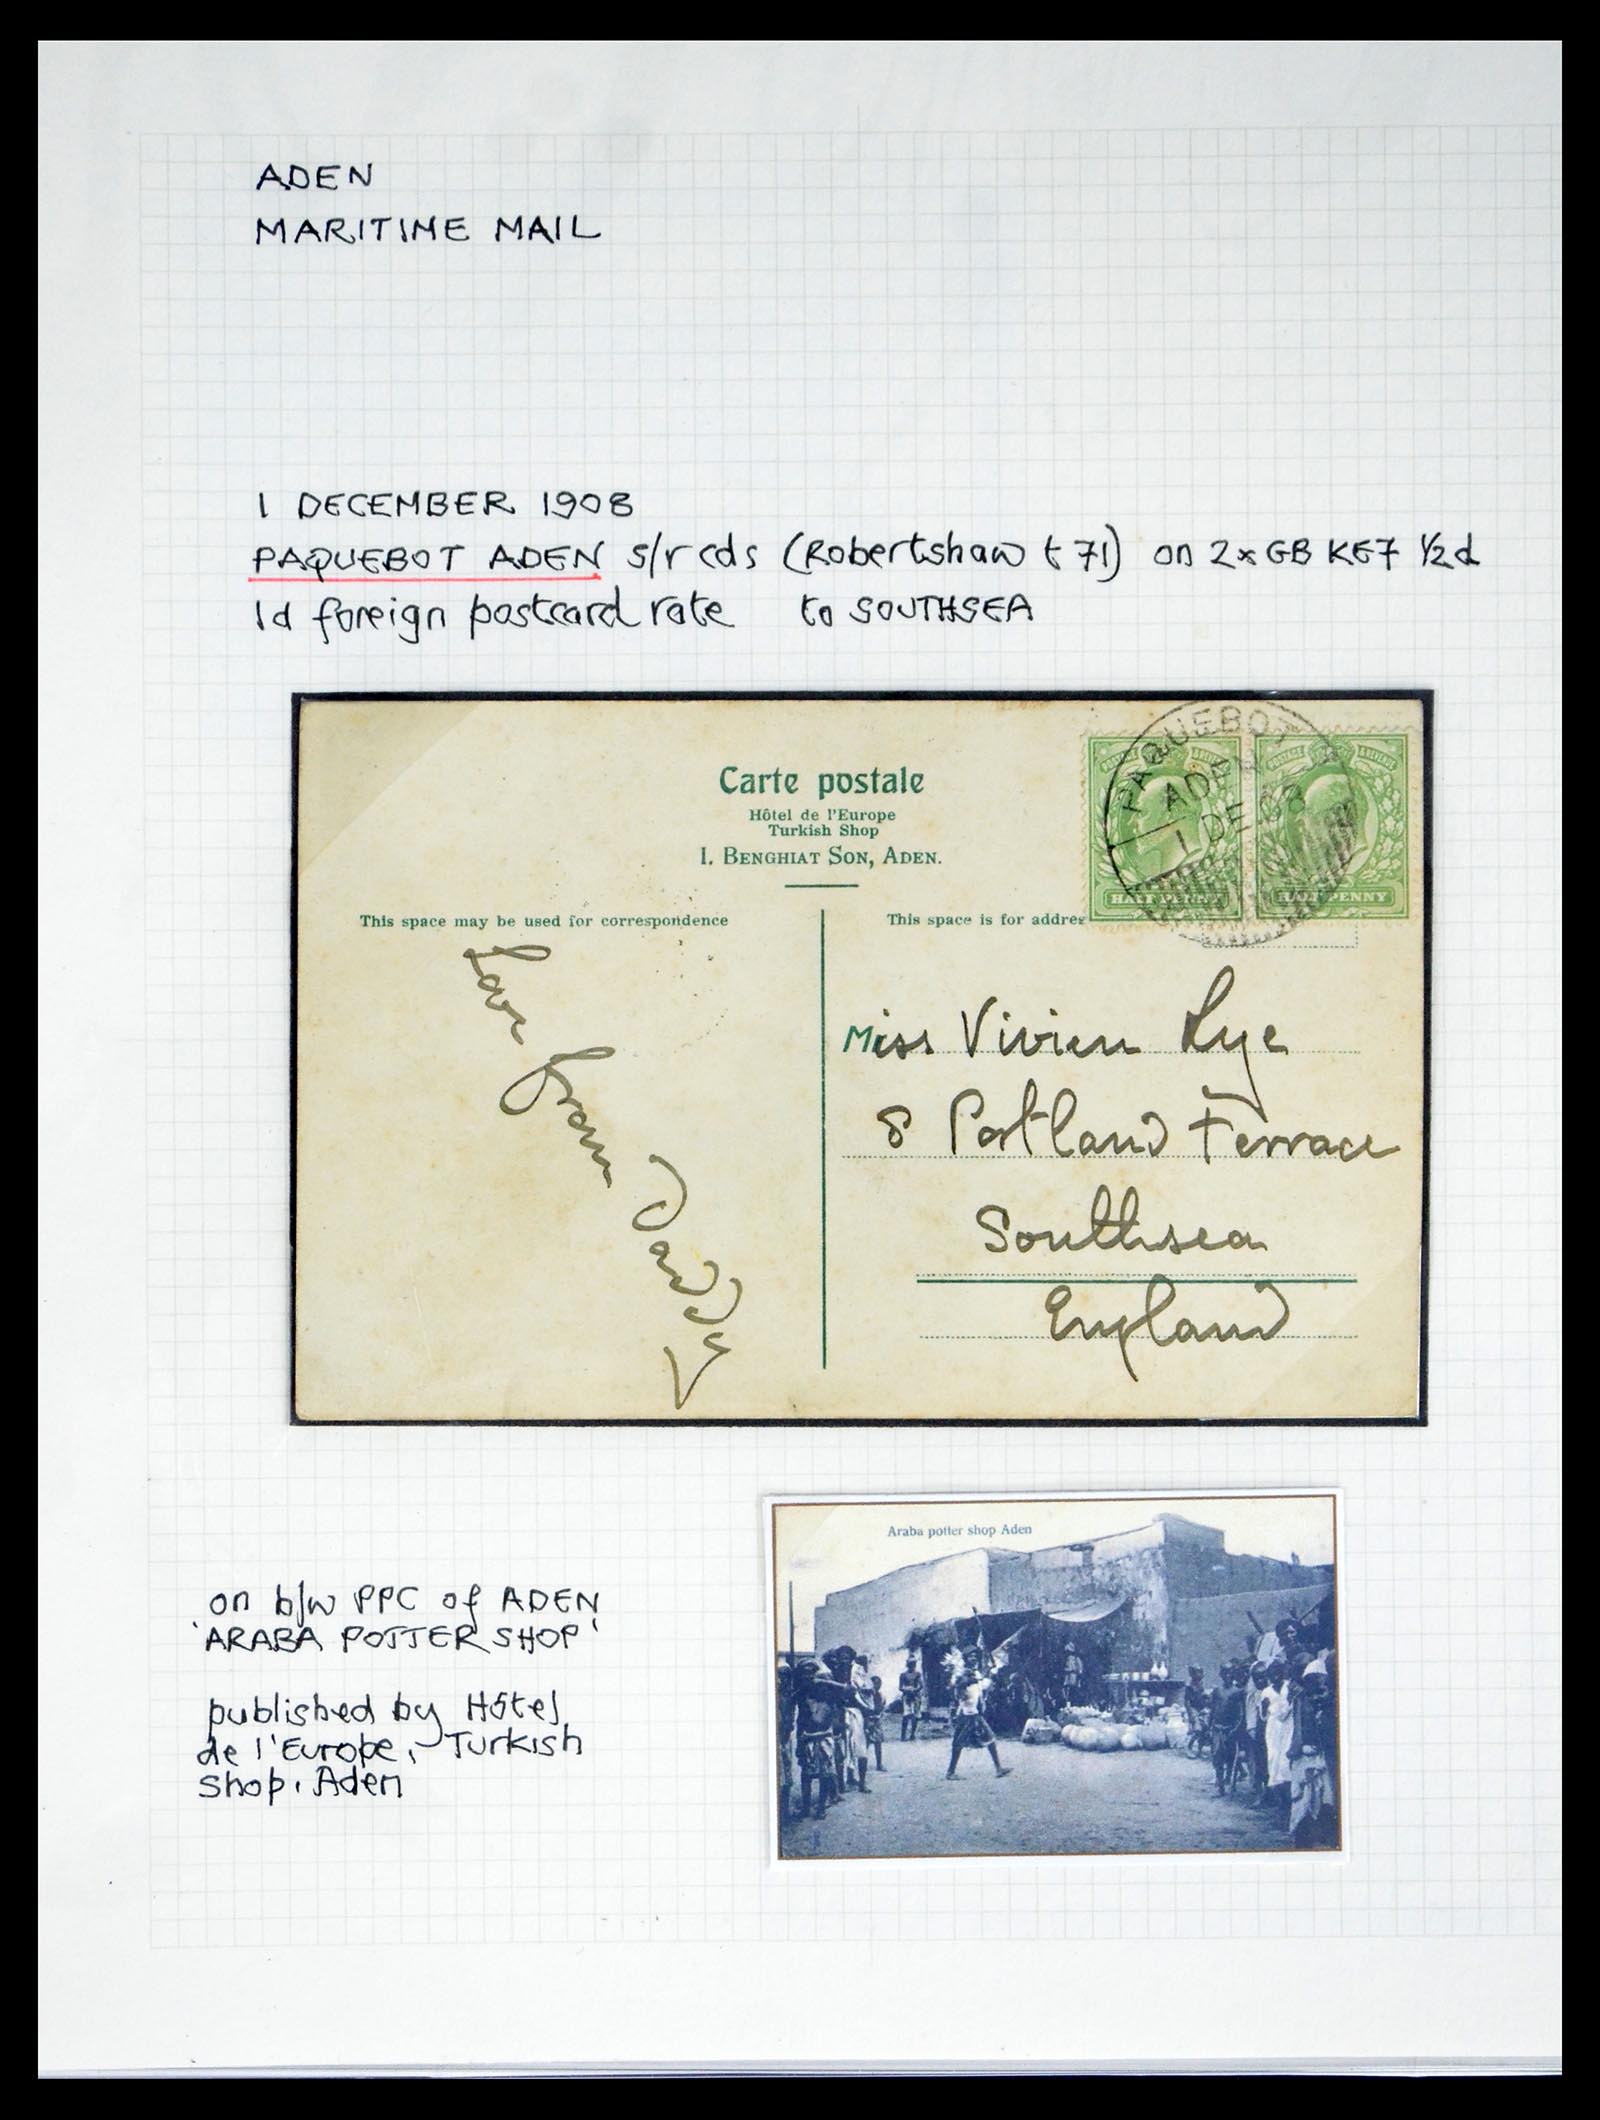 ADEN
MARITIME MAIL
1 DECEMBER 1908
PAQUEBOT ADEN s/r cds (Robertshaw t 71) on 2x GB KE7 ½d
1d foreign postcard rate to SOUTHSEA
Carte postale
Hôtel de l'Europe
Turkish Shop
I. BENGHIAT SON, ADEN.
PAQUEBOT
ADEN
1 DE 08
POSTAGE REVENUE
HALF PENNY
POSTAGE REVENUE
HALF PENNY
This space may be used for correspondence
Love from Daddy
This space is for addres
Miss Vivien Lye
8 Portland Terrace
Southsea
England
Araba potter shop Aden
on b/w PPC of ADEN
'ARABA POTTER SHOP'
published by Hôtel
de l'Europe, Turkish
Shop, Aden